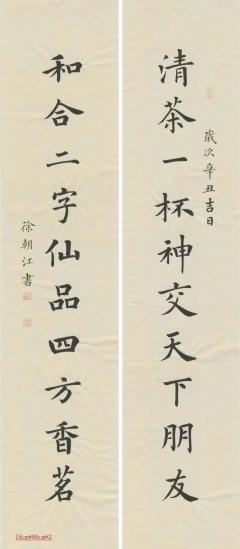 清茶一杯神交天下朋友
歲次辛丑吉日
和合二字仙品四方香茗
徐朝江書
18cm*88cm*2